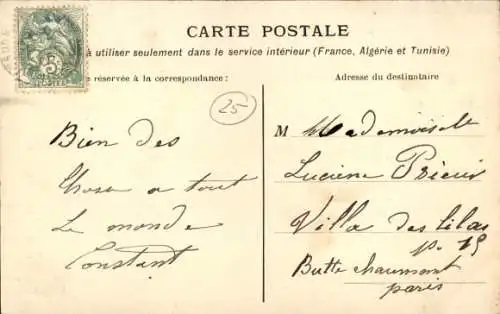 CARTE POSTALE
à utiliser seulement dans le service intérieur (France, Algérie et Tunisie)
réservée à la correspondance :
Adresse du destinataire
25
Bien des
Chose a tout
Le monde
Constant
M Mademoiselle
Lucienne Prieur
Villa des Lilas
p. 19
Butte chaumont
paris